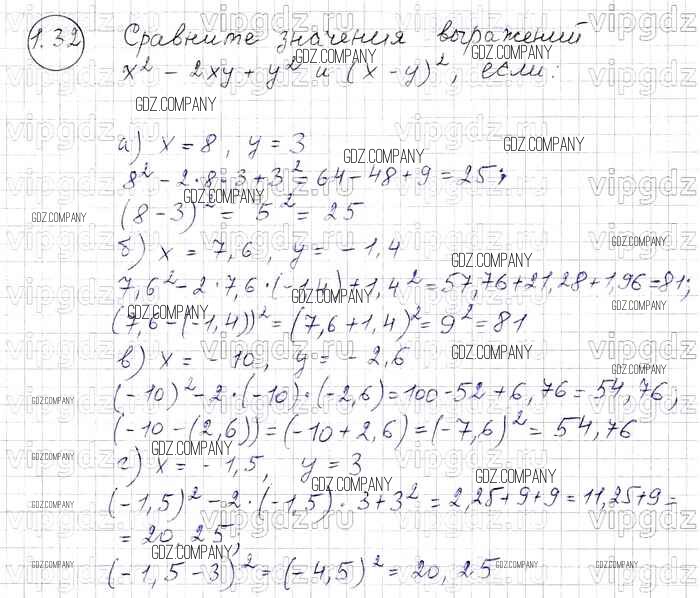 1.32 Сравните значения выражений
x² - 2xy + y² и (x - y)², если:
а) x = 8, y = 3
8² - 2·8·3 + 3² = 64 - 48 + 9 = 25;
(8 - 3)² = 5² = 25
б) x = 7,6, y = -1,4
7,6² - 2·7,6·(-1,4) + 1,4² = 57,76 + 21,28 + 1,96 = 81;
(7,6 - (-1,4))² = (7,6 + 1,4)² = 9² = 81
в) x = -10, y = -2,6
(-10)² - 2·(-10)·(-2,6) = 100 - 52 + 6,76 = 54,76;
(-10 - (2,6)) = (-10 + 2,6) = (-7,6)² = 54,76
г) x = -1,5, y = 3
(-1,5)² - 2·(-1,5)·3 + 3² = 2,25 + 9 + 9 = 11,25 + 9 =
= 20,25;
(-1,5 - 3)² = (-4,5)² = 20,25
GDZ.COMPANY
vipgdz.ru